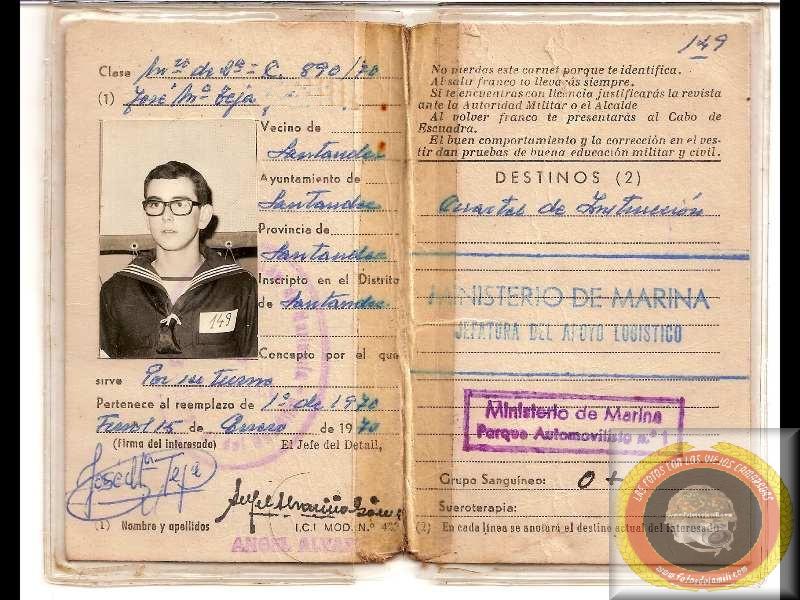 Clase Mro de 2ª - C. 890/70
(1) José Mª Teja
Vecino de
Santander
Ayuntamiento de
Santander
Provincia de
Santander
Inscripto en el Distrito
de Santander
149
Concepto por el que
sirve Por su turno
Pertenece al reemplazo de 1º de 1970
Ferrol 15 de Enero de 1970
(Firma del interesado) El Jefe del Detall,
José Mª Teja
(1) Nombre y apellidos I.C.I MOD. N.º
ANGEL
149
No pierdas este carnet porque te identifica.
Al salir franco lo llevarás siempre.
Si te encuentras con licencia justificarás la revista
ante la Autoridad Militar o el Alcalde
Al volver franco te presentarás al Cabo de
Escuadra.
El buen comportamiento y la corrección en el ves-
tir dan pruebas de buena educación militar y civil.
DESTINOS (2)
Cuartel de Instrucción
MINISTERIO DE MARINA
JEFATURA DEL APOYO LOGISTICO
Ministerio de Marina
Parque Automovilista n.º 1
Grupo Sanguíneo: O +
Sueroterapia:
(2) En cada línea se anotará el destino actual del interesado
LAS FOTOS CON LAS VIEJOS CAMARADAS
www.fotosdelamili.com